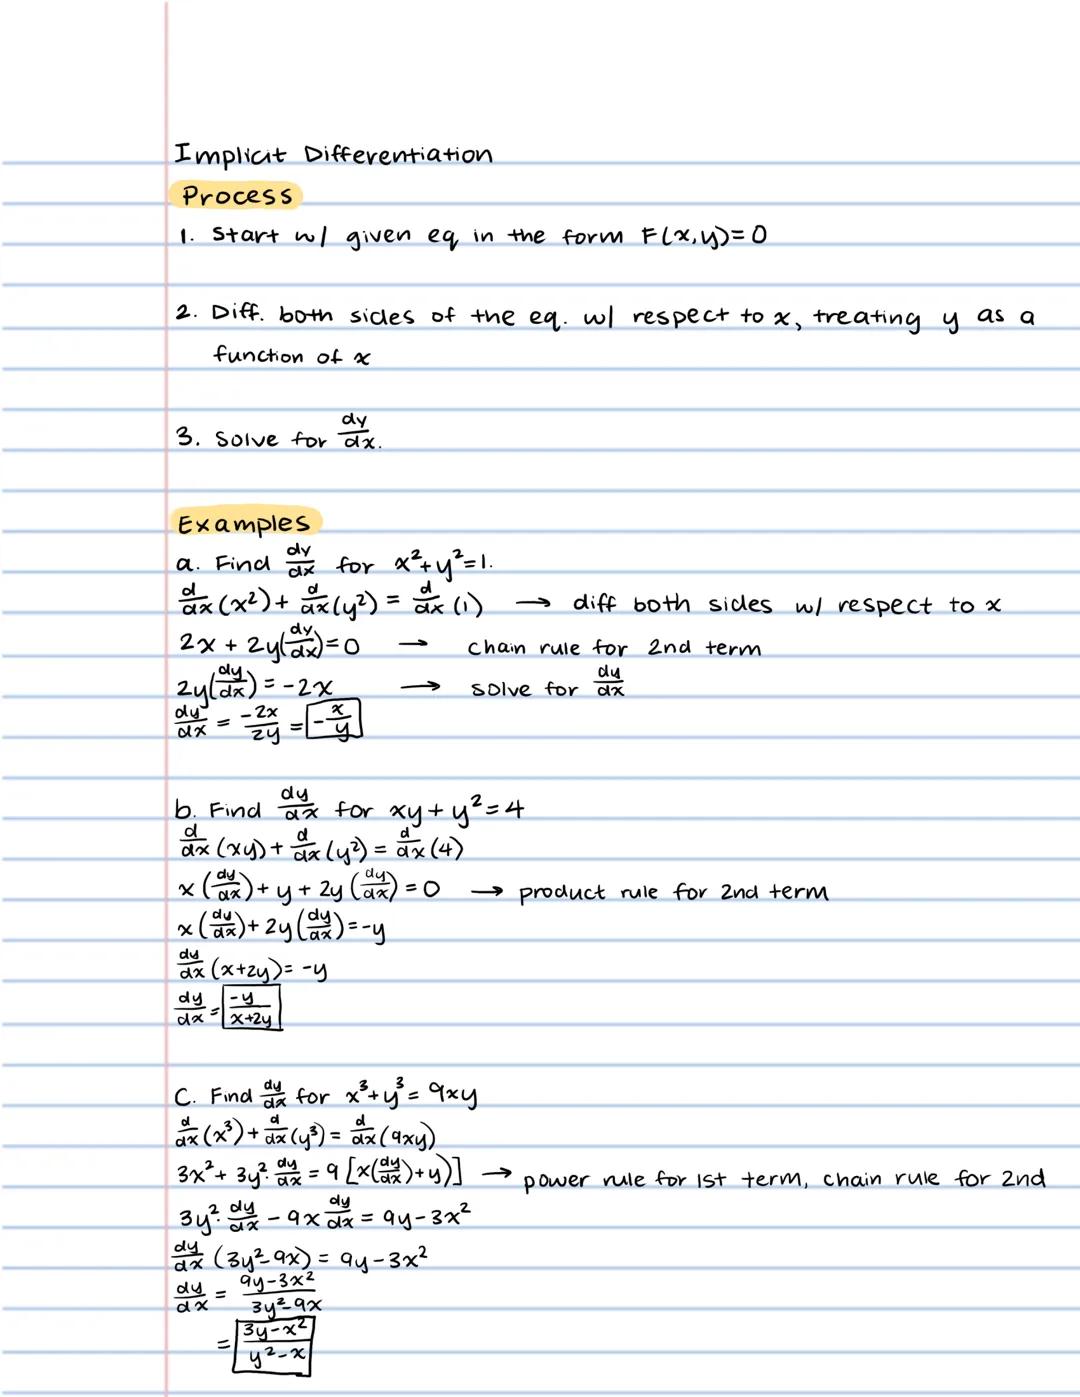 Implicit Differentiation
Process
1. Start w/ given eq in the form F(x,y)=0
2. Diff. both sides of the eq. w/ respect to x, treating y as a
function of x
3. Solve for dy/dx.
Examples
a. Find dy/dx for x²+y²=1.
d/dx(x²)+ d/dx(y²) = d/dx (1) → diff both sides w/ respect to x
2x + 2y(dy/dx)=0 → chain rule for 2nd term
2y(dy/dx) = -2x → solve for dy/dx
dy/dx = -2x/2y = -x/y
b. Find dy/dx for xy+y²=4
d/dx (xy)+ d/dx(y²) = d/dx(4)
x(dy/dx)+y+2y(dy/dx)=0 → product rule for 2nd term
x(dy/dx)+2y(dy/dx)=-y
dy/dx (x+2y)= -y
dy/dx = -y/x+2y
C. Find dy/dx for x³+y³= 9xy
d/dx(x³)+ d/dx(y³) = d/dx(9xy)
3x²+ 3y²· dy/dx = 9[x(dy/dx)+y)] → power rule for 1st term, chain rule for 2nd
3y²· dy/dx - 9x dy/dx = 9y-3x²
dy/dx (3y²-9x) = 9y-3x²
dy/dx = 9y-3x²/3y²-9x
= 3y-x²/y²-x